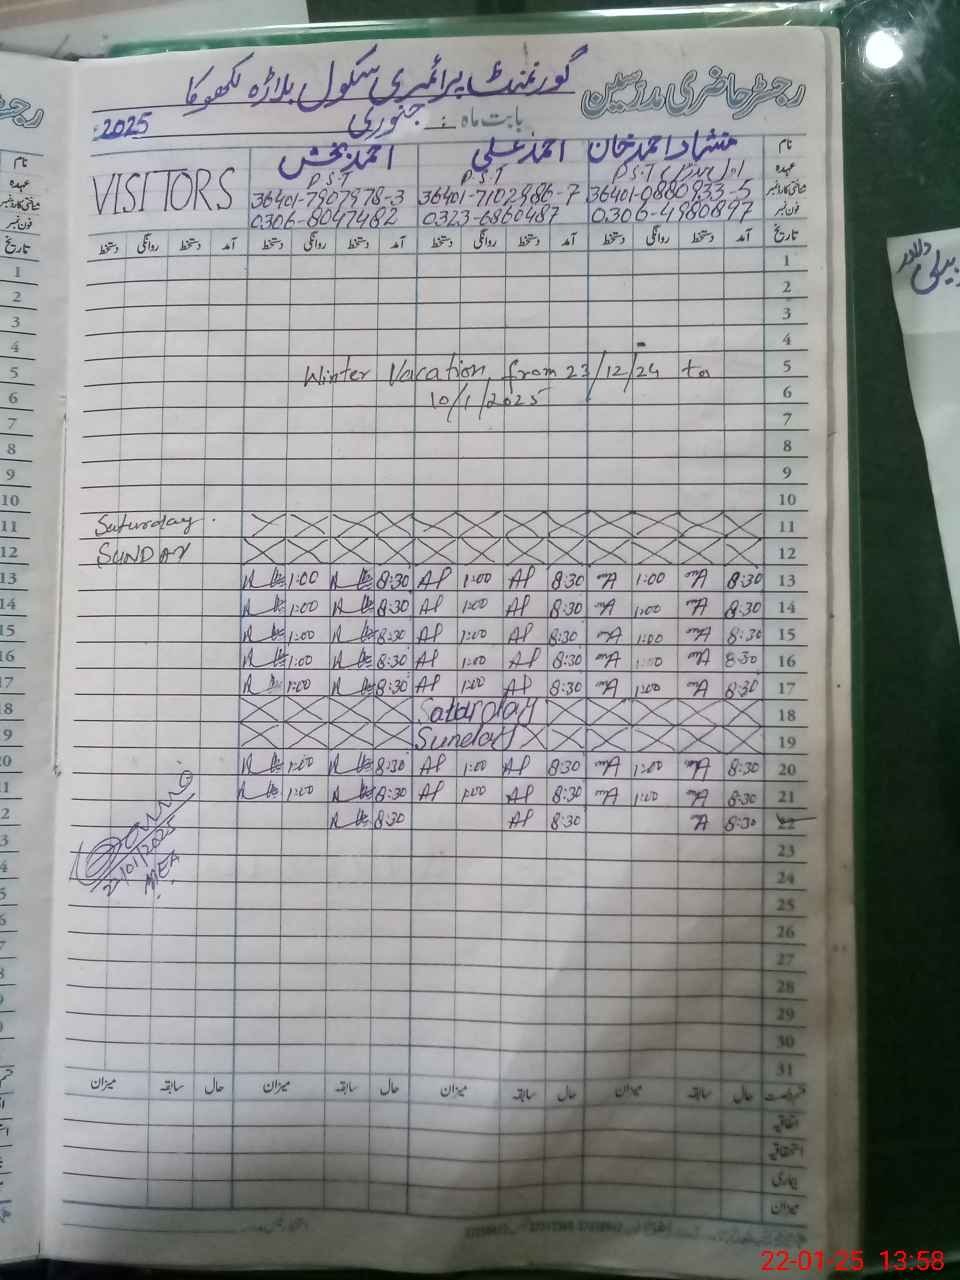 رجسٹر حاضری مدرسین
گورنمنٹ پرائمری سکول بلاڑہ لکھوکا
بابت ماہ : جنوری 2025ء
نام منشاد احمد خان احمد علی احمد بخش VISITORS
عہدہ P.S.T P.S.T P.S.T
شناختی کارڈ نمبر 36401-0880933-5 36401-7102986-7 36401-7907978-3
فون نمبر 0306-4980897 0323-6860487 0306-8047482
تاریخ آمد دستخط روانگی دستخط آمد دستخط روانگی دستخط آمد دستخط روانگی دستخط آمد دستخط روانگی دستخط
1
2
3
4
5
Winter Vacation from 23/12/24 to
6
10/1/2025
7
8
9
10
Saturday. 11
SUNDAY 12
1:00 8:30 AP 1:00 AP 8:30 mA 1:00 mA 8:30 13
1:00 8:30 AP 1:00 AP 8:30 mA 1:00 mA 8:30 14
1:00 8:30 AP 1:00 AP 8:30 mA 1:00 mA 8:30 15
1:00 8:30 AP 1:00 AP 8:30 mA 1:00 mA 8:30 16
1:00 8:30 AP 1:00 AP 8:30 mA 1:00 mA 8:30 17
Saturday 18
Sunday 19
1:00 8:30 AP 1:00 AP 8:30 mA 1:00 mA 8:30 20
1:00 8:30 AP 1:00 AP 8:30 mA 1:00 mA 8:30 21
8:30 AP 8:30 A 8:30 22
22/01/2025
MEA
23
24
25
26
27
28
29
30
31
حال سابقہ میزان حال سابقہ میزان حال سابقہ میزان حال سابقہ میزان
اتفاقیہ
استحقاقیہ
بیماری
میزان
22-01-25 13:58